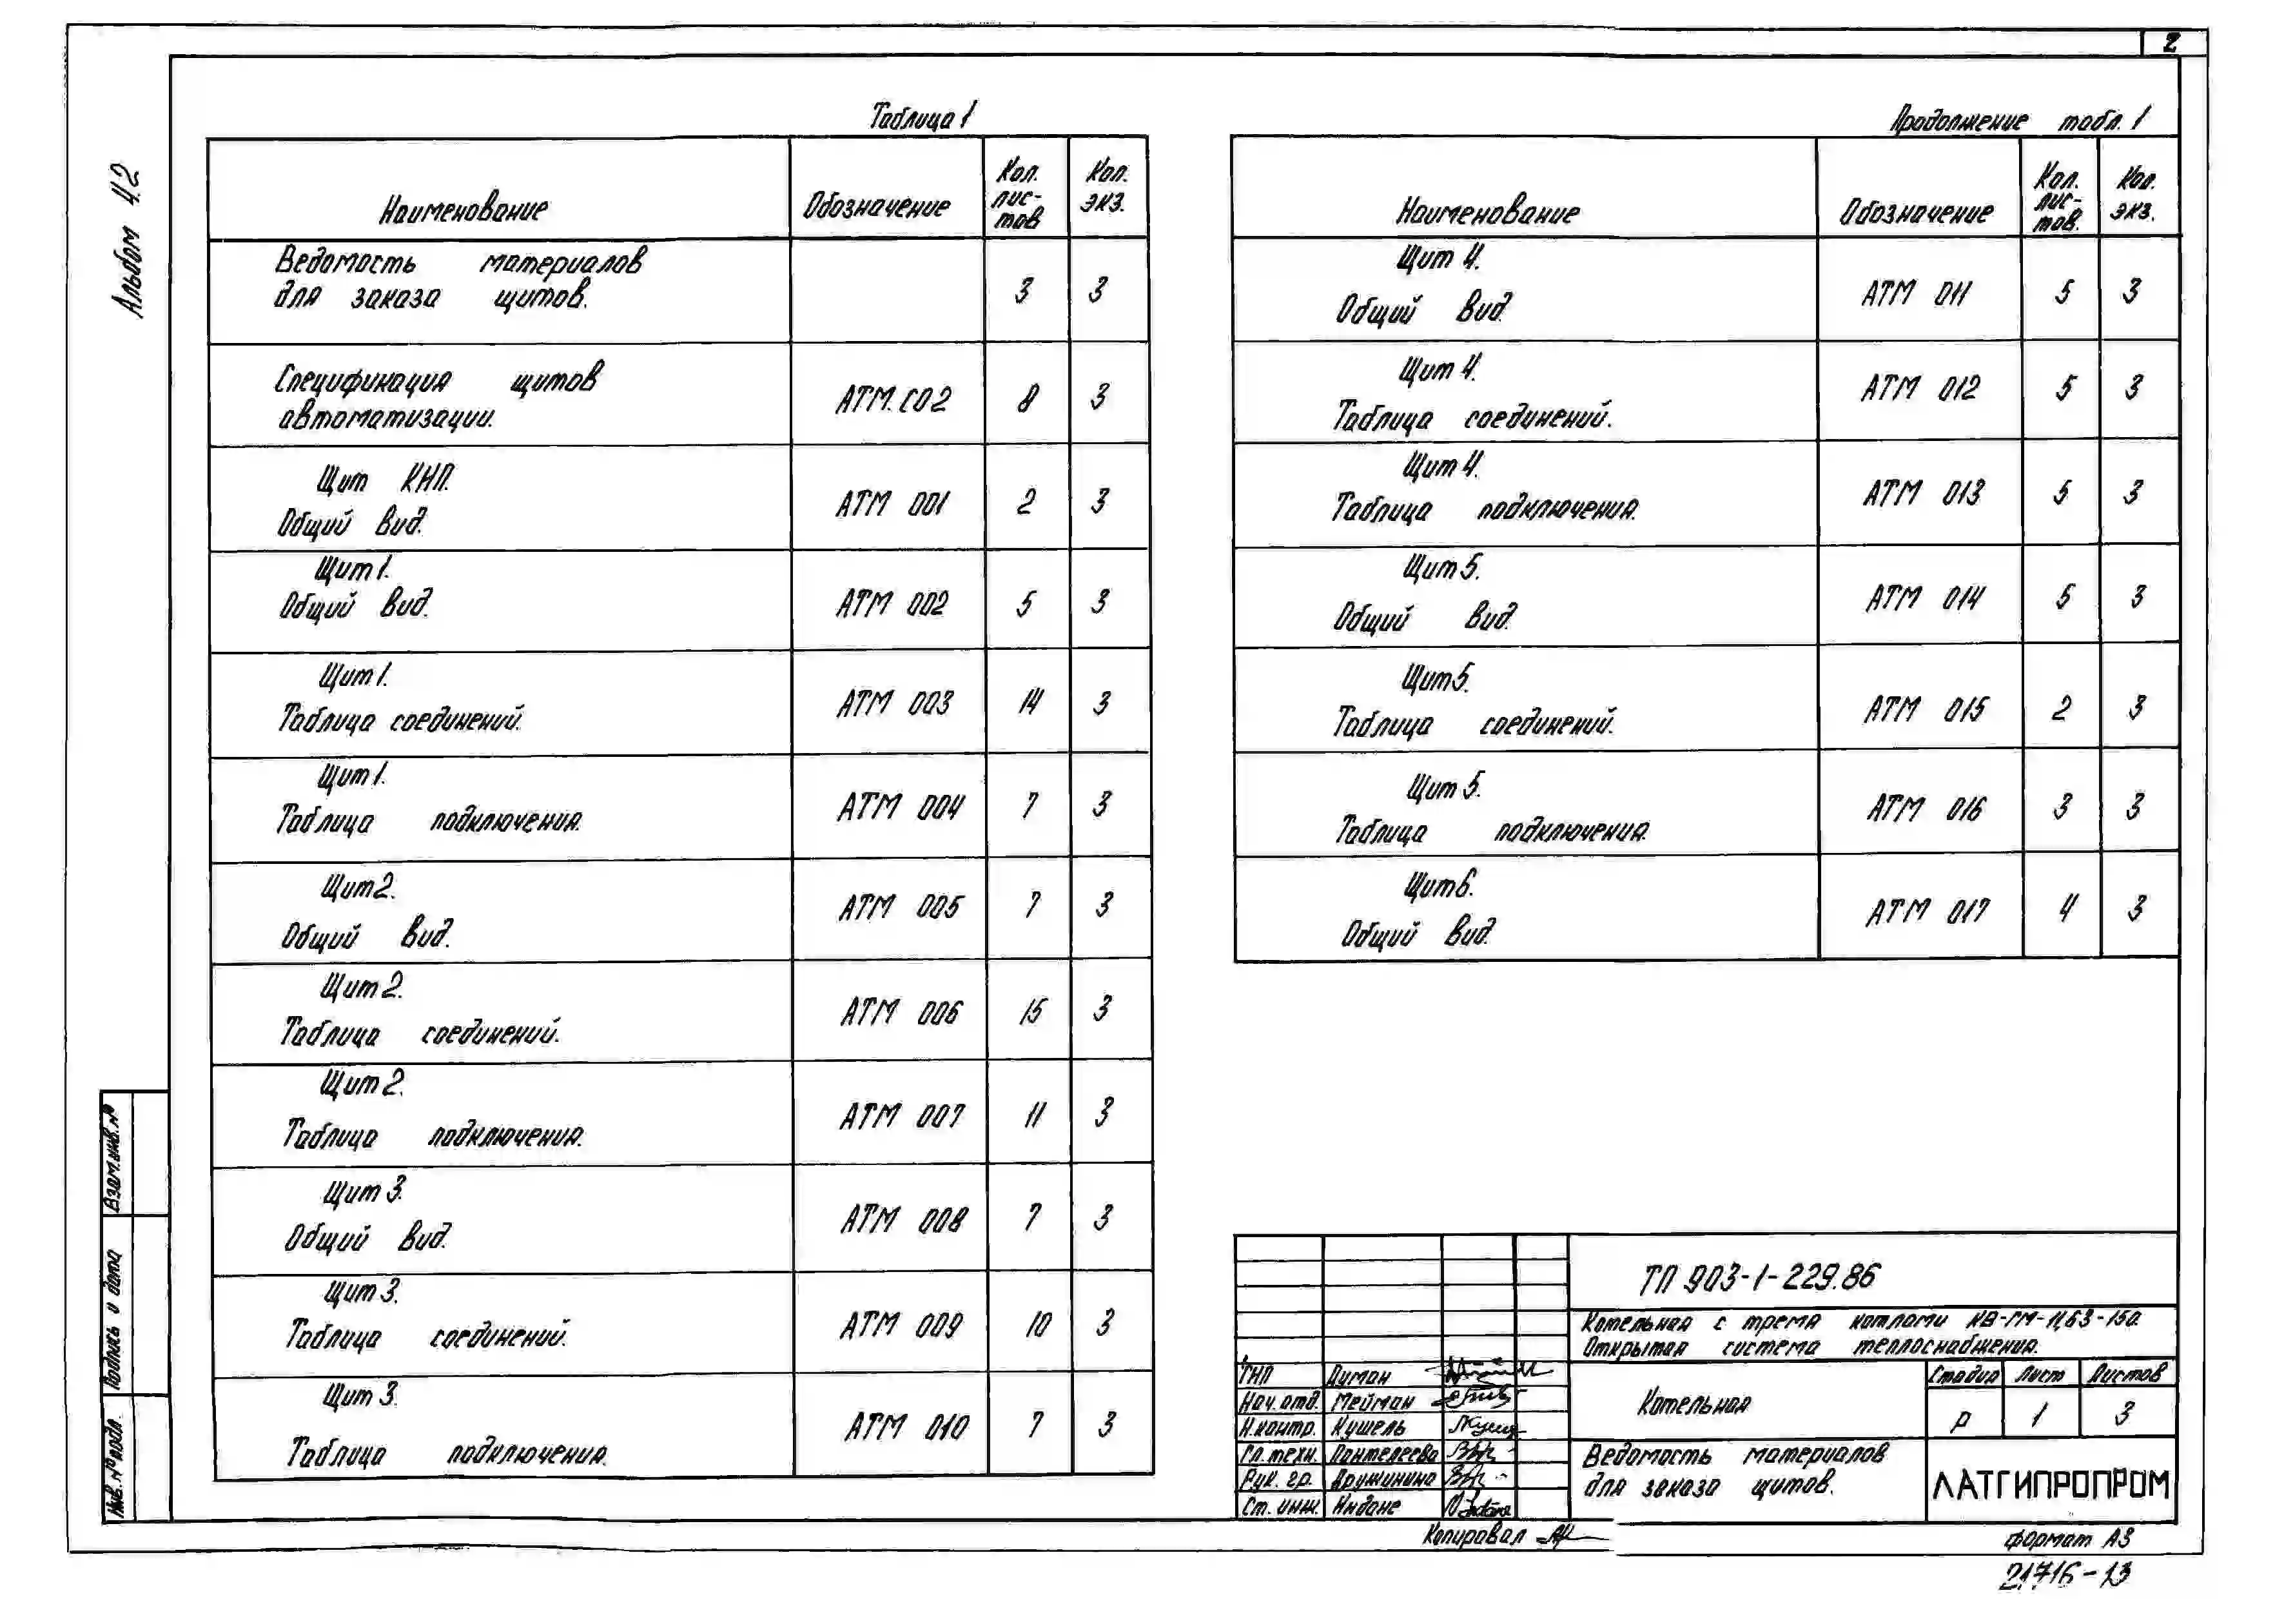 2
Альбом 4.2
Таблица 1
Наименование Обозначение Кол. лис- тов Кол. экз.
Ведомость материалов
для заказа щитов. 3 3
Спецификация щитов
автоматизации. АТМ.СО2 8 3
Щит КНП.
Общий вид. АТМ 001 2 3
Щит 1.
Общий вид. АТМ 002 5 3
Щит 1.
Таблица соединений. АТМ 003 14 3
Щит 1.
Таблица подключения. АТМ 004 7 3
Щит 2.
Общий вид. АТМ 005 7 3
Щит 2.
Таблица соединений. АТМ 006 15 3
Щит 2.
Таблица подключения. АТМ 007 11 3
Щит 3.
Общий вид. АТМ 008 7 3
Щит 3.
Таблица соединений. АТМ 009 10 3
Щит 3.
Таблица подключения. АТМ 010 7 3
Продолжение табл. 1
Наименование Обозначение Кол. лис- тов. Кол. экз.
Щит 4.
Общий вид. АТМ 011 5 3
Щит 4.
Таблица соединений. АТМ 012 5 3
Щит 4.
Таблица подключения. АТМ 013 5 3
Щит 5.
Общий вид. АТМ 014 5 3
Щит 5.
Таблица соединений. АТМ 015 2 3
Щит 5.
Таблица подключения. АТМ 016 3 3
Щит 6.
Общий вид. АТМ 017 4 3
ТП 903-1-229.86
Котельная с тремя котлами КВ-ГМ-11,63-150.
Открытая система теплоснабжения.
ГИП Думан
Нач. отд. Мейман
Н.контр. Кушель
Гл. техн. Пантелеева
Рук. гр. Дружинина
Ст. инж. Индане
Котельная
Стадия Лист Листов
Р 1 3
Ведомость материалов
для заказа щитов.
ЛАТГИПРОПРОМ
Копировал
Формат А3
21716-13
Взам.инв.№
Подпись и дата
Инв.№ подл.